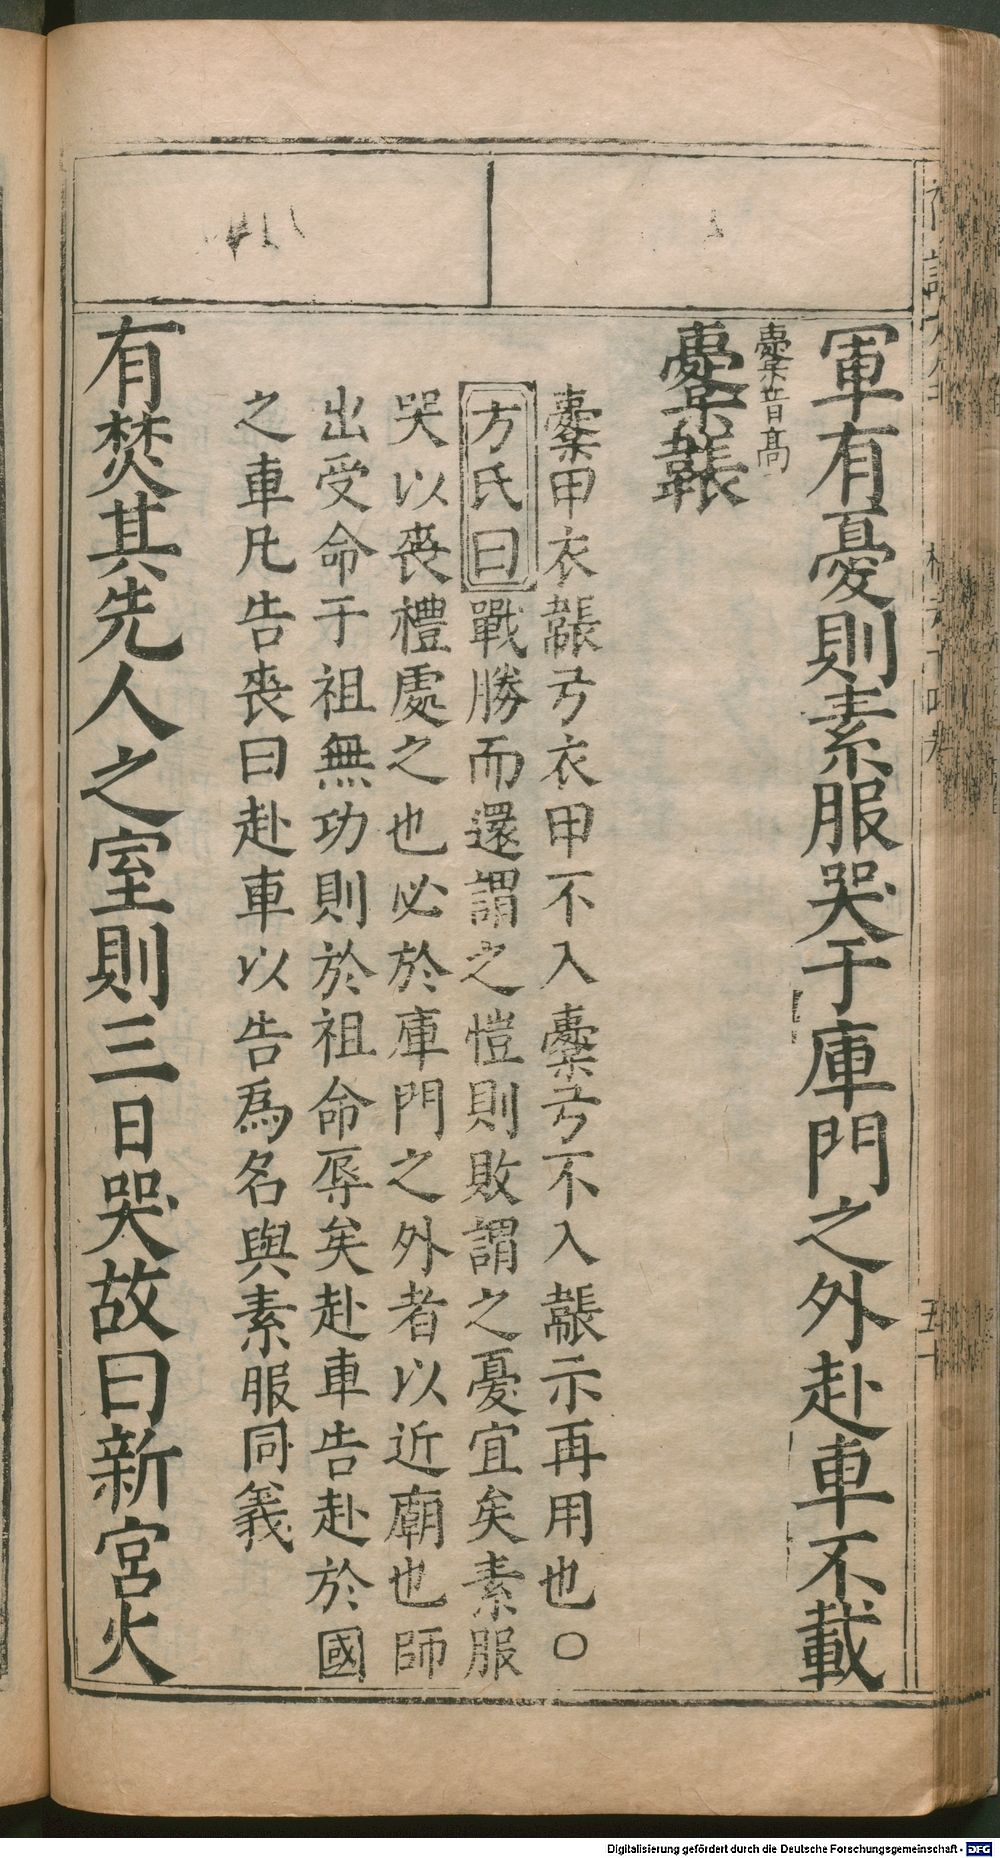 軍有憂則素服哭于庫門之外赴車不載
櫜音髙
櫜韔
櫜甲衣韔弓衣甲不入櫜弓不入韔示再用也○
方氏曰戰勝而還謂之愷則敗謂之憂宜矣素服
哭以喪禮處之也必於庫門之外者以近廟也師
出受命于祖無功則於祖命辱矣赴車告赴於國
之車凡告喪曰赴車以告爲名與素服同義
有焚其先人之室則三日哭故曰新宮火
Digitalisierung gefördert durch die Deutsche Forschungsgemeinschaft - DFG